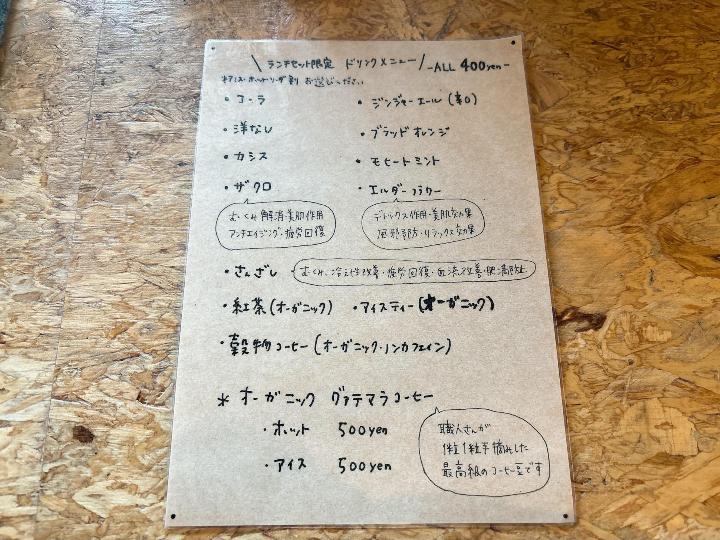 ランチセット限定 ドリンクメニュー -ALL 400yen-
お選びください
・コーラ ・ジンジャーエール(辛口)
・洋なし ・ブラッドオレンジ
・カシス ・モヒートミント
・ザクロ ・エルダーフラワー
むくみ解消・美肌作用
アンチエイジング・疲労回復
デトックス作用・美肌効果
風邪予防・リラックス効果
・さんざし むくみ、冷え性改善・疲労回復・血流改善・肥満防止
・紅茶(オーガニック) ・アイスティー(オーガニック)
・穀物コーヒー(オーガニック・ノンカフェイン)
* オーガニック グァテマラコーヒー
・ホット 500yen
・アイス 500yen
職人さんが
1粒1粒手摘みした
最高級のコーヒー豆です